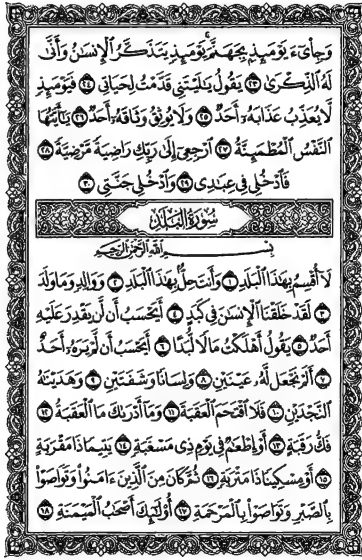 وَجِا۟ىٓءَ يَوْمَئِذٍۭ بِجَهَنَّمَ يَوْمَئِذٍ يَتَذَكَّرُ ٱلْإِنسَٰنُ وَأَنَّىٰ
لَهُ ٱلذِّكْرَىٰ ٢٣ يَقُولُ يَٰلَيْتَنِى قَدَّمْتُ لِحَيَاتِى ٢٤ فَيَوْمَئِذٍ
لَّا يُعَذِّبُ عَذَابَهُۥٓ أَحَدٌ ٢٥ وَلَا يُوثِقُ وَثَاقَهُۥٓ أَحَدٌ ٢٦ يَٰٓأَيَّتُهَا
ٱلنَّفْسُ ٱلْمُطْمَئِنَّةُ ٢٧ ٱرْجِعِىٓ إِلَىٰ رَبِّكِ رَاضِيَةً مَّرْضِيَّةً ٢٨
فَٱدْخُلِى فِى عِبَٰدِى ٢٩ وَٱدْخُلِى جَنَّتِى ٣٠
سُورَةُ ٱلْبَلَدِ
بِسْمِ ٱللَّهِ ٱلرَّحْمَٰنِ ٱلرَّحِيمِ
لَآ أُقْسِمُ بِهَٰذَا ٱلْبَلَدِ ١ وَأَنتَ حِلٌّۢ بِهَٰذَا ٱلْبَلَدِ ٢ وَوَالِدٍ وَمَا وَلَدَ
٣ لَقَدْ خَلَقْنَا ٱلْإِنسَٰنَ فِى كَبَدٍ ٤ أَيَحْسَبُ أَن لَّن يَقْدِرَ عَلَيْهِ
أَحَدٌ ٥ يَقُولُ أَهْلَكْتُ مَالًا لُّبَدًا ٦ أَيَحْسَبُ أَن لَّمْ يَرَهُۥٓ أَحَدٌ
٧ أَلَمْ نَجْعَل لَّهُۥ عَيْنَيْنِ ٨ وَلِسَانًا وَشَفَتَيْنِ ٩ وَهَدَيْنَٰهُ
ٱلنَّجْدَيْنِ ١٠ فَلَا ٱقْتَحَمَ ٱلْعَقَبَةَ ١١ وَمَآ أَدْرَىٰكَ مَا ٱلْعَقَبَةُ ١٢
فَكُّ رَقَبَةٍ ١٣ أَوْ إِطْعَٰمٌ فِى يَوْمٍ ذِى مَسْغَبَةٍ ١٤ يَتِيمًا ذَا مَقْرَبَةٍ
١٥ أَوْ مِسْكِينًا ذَا مَتْرَبَةٍ ١٦ ثُمَّ كَانَ مِنَ ٱلَّذِينَ ءَامَنُوا۟ وَتَوَاصَوْا۟
بِٱلصَّبْرِ وَتَوَاصَوْا۟ بِٱلْمَرْحَمَةِ ١٧ أُو۟لَٰٓئِكَ أَصْحَٰبُ ٱلْمَيْمَنَةِ ١٨